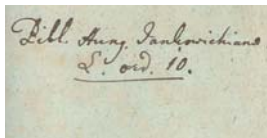 Bibl. Hung. Jankowichiana
L. ord. 10.